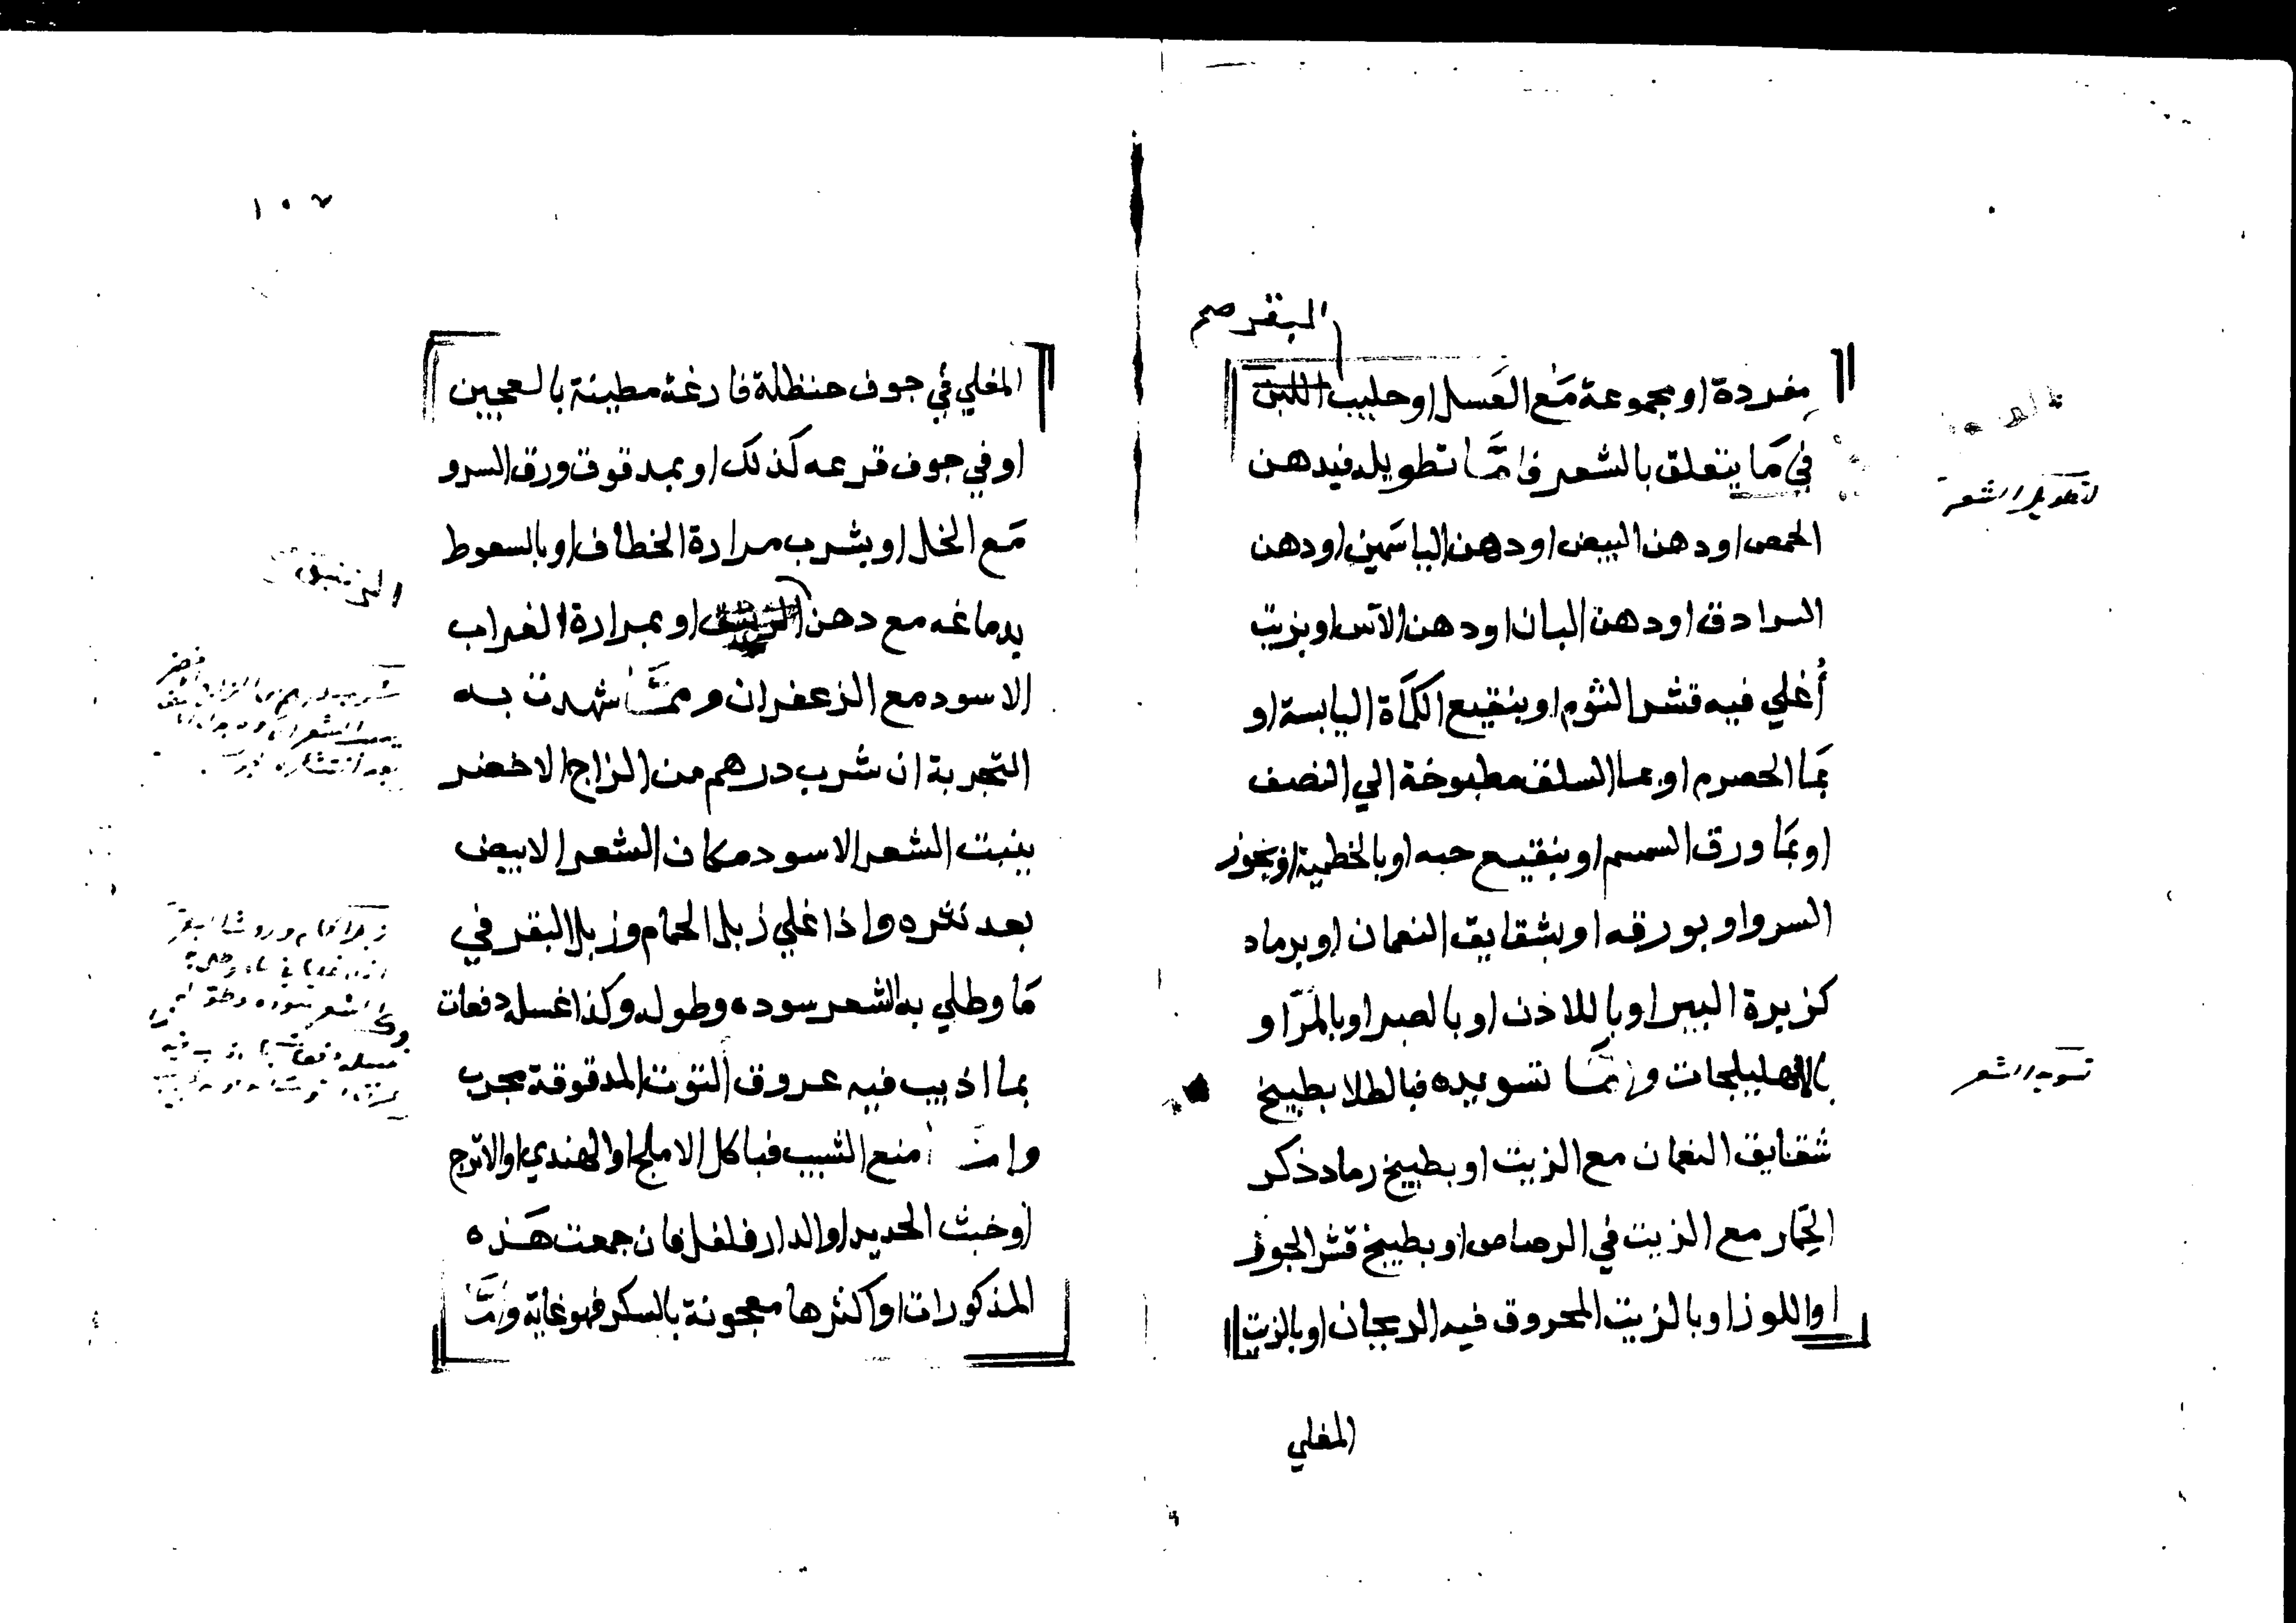 البقر صح
مفردة او مجموعة مَع العَسل او حليب اللبن
في مَا يتعلق بالشعر فامَّا تطويله فيدهن
الحمص او دهن البيض او دهن الياسَمين او دهن
السرادق او دهن البان او دهن الآس او بزيت
أُغلي فيه قشر الثوم او بنقيع الكمَاة اليابسة او
بمَا الحصرم او بما السلق مطبوخة الي النصف
او بمَا ورق السمسم او بنقيع حبه او بالخطمية او بجوز
السرو او بورقه او بشقايق النعمان او برماد
كزبرة البير او باللاذن او بالصبر او بالمرّ او
بالاهليلجات وامَّا تسويده فبالطلا بطبيخ
شقايق النعمان مع الزيت او بطبيخ رماد ذكر
الحِمَار مع الزيت في الرصاص او بطبيخ قشر الجوز
او اللوز او بالزيت المحروق فيه الريحان او بالزيت
المغلي
لتطويل الشعر
تسويد الشعر
١٠٧
المغلي في جوف حنظلة فارغة مطينة بالعجين
او في جوف قرعه كذلك او بمدقوق ورق السرو
مَع الخل او بشرب مرارة الخطاف او بالسعوط
بدماغه مع دهن الزنبق او بمرارة الغراب
الاسود مع الزعفران وممَّا شهدت به
التجربة ان شرب درهم من الزاج الاخضر
ينبت الشعر الاسود مكان الشعر الابيض
بعد نثره واذا غلي زبل الحمام وزبل البقر في
مَا وطلي به الشعر سوده وطوله وكذا غسله دفعات
بما اذيب فيه عروق التوت المدقوقة مجرب
وامّا منع الشيب فباكل الاملج او الهندي او الاترج
او خبث الحديد او الدار فلفل فان جمعت هَذه
المذكورات او اكثرها معجونة بالسكر فهو غاية وامَّا
الزنبق